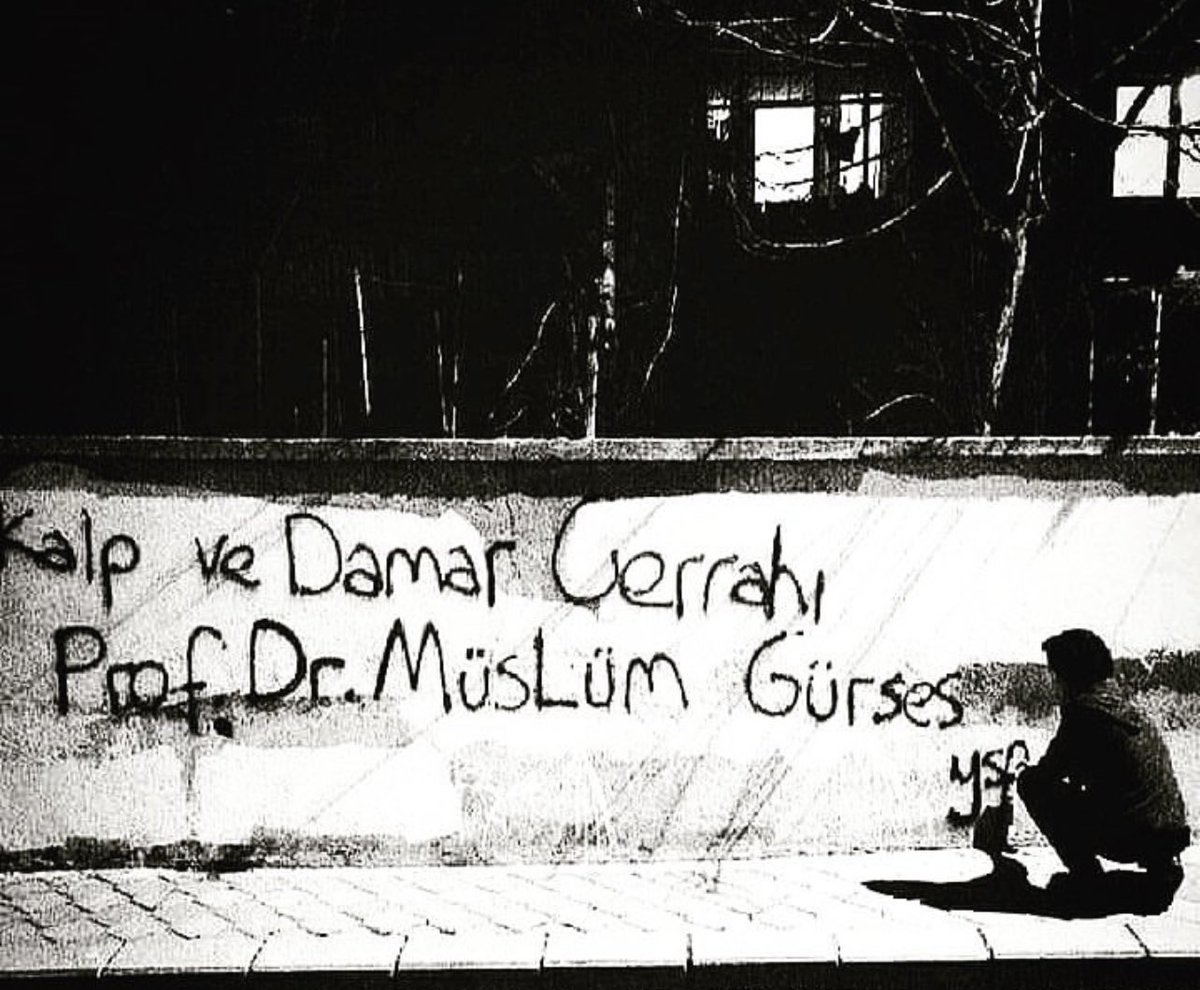 Kalp ve Damar Cerrahı
Prof. Dr. MüsLüm Gürses